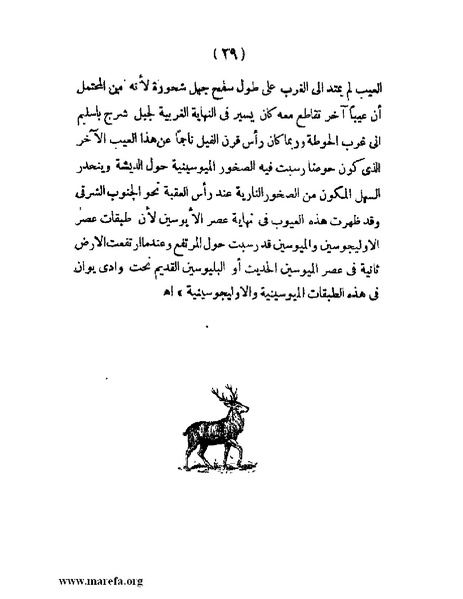 ( ٣٩ )
العيب لم يمتد الى الغرب على طول سفح جهل شحورة لأنه من المحتمل
أن عيباً آخر تقاطع معه كان يسير فى النهاية الغربية لجبل شرج باسليم
الى غرب الحوطة وربما كان رأس قرن الفيل ناجماً عن هذا العيب الآخر
الذى كون حوضا رسبت فيه الصخور الميوسينية حول الديشة وينحدر
السهل المكون من الصخور النارية عند رأس العقبة نحو الجنوب الشرقى
وقد ظهرت هذه العيوب فى نهاية عصر الأيوسين لأن طبقات عصر
الاوليجوسين والميوسين قد رسبت حول المرتفع وعندما ارتفعت الارض
ثانية فى عصر الميوسين الحديث أو البليوسين القديم نحت وادى يوان
فى هذه الطبقات الميوسينية والاوليجوسينية » اه
www.marefa.org